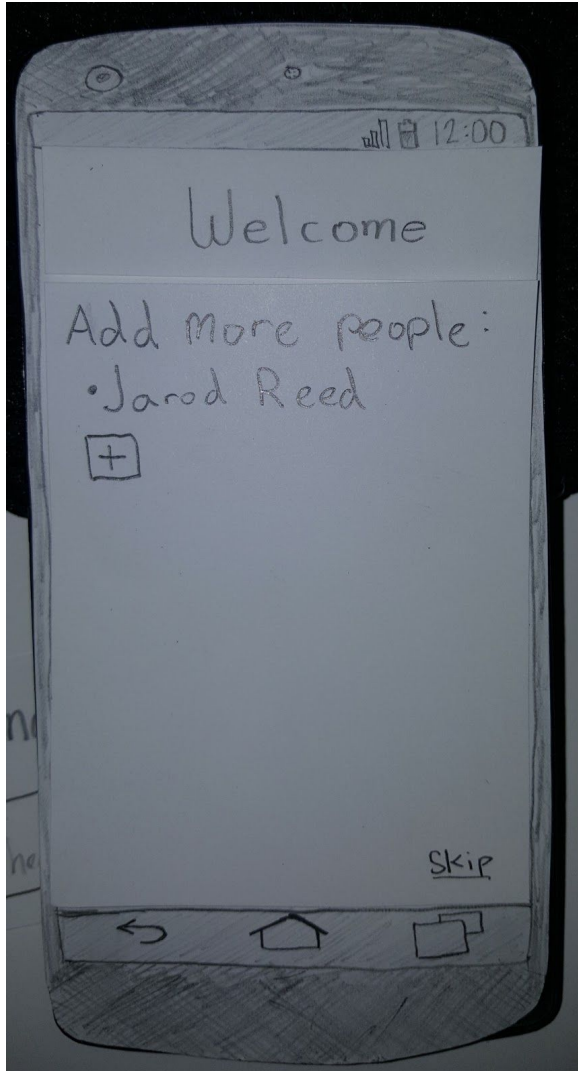 12:00
Welcome
Add more people:
• Jarod Reed
+
Skip